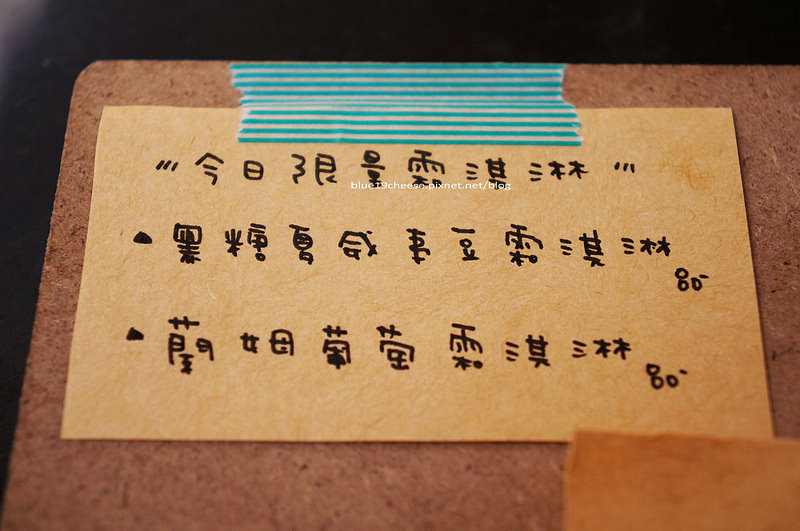 ''' 今日限量霜淇淋 '''
blue19cheese.pixnet.net/blog
▲ 黑糖夏威夷豆霜淇淋
80-
▲ 蘭姆葡萄霜淇淋
80-